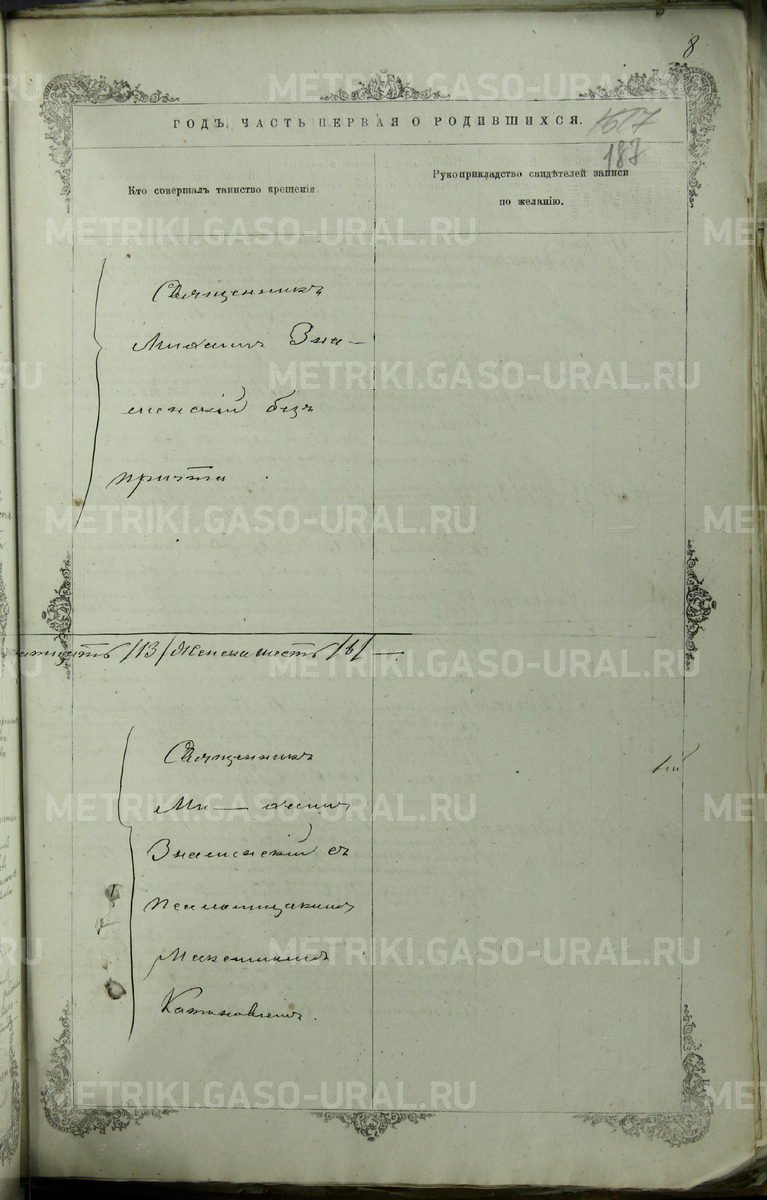 8
ГОДЪ, ЧАСТЬ ПЕРВАЯ О РОДИВШИХСЯ.
187
Кто совершалъ таинство крещенія.
Рукоприкладство свидѣтелей записи
по желанію.
Священникъ
Михаилъ Зна-
менскій безъ
причта.
/13/ Женска шесть /6/ —
Священникъ
Ми— хаилъ
Знаменскій съ
Псаломщикомъ
Катановымъ.
METRIKI.GASO-URAL.RU